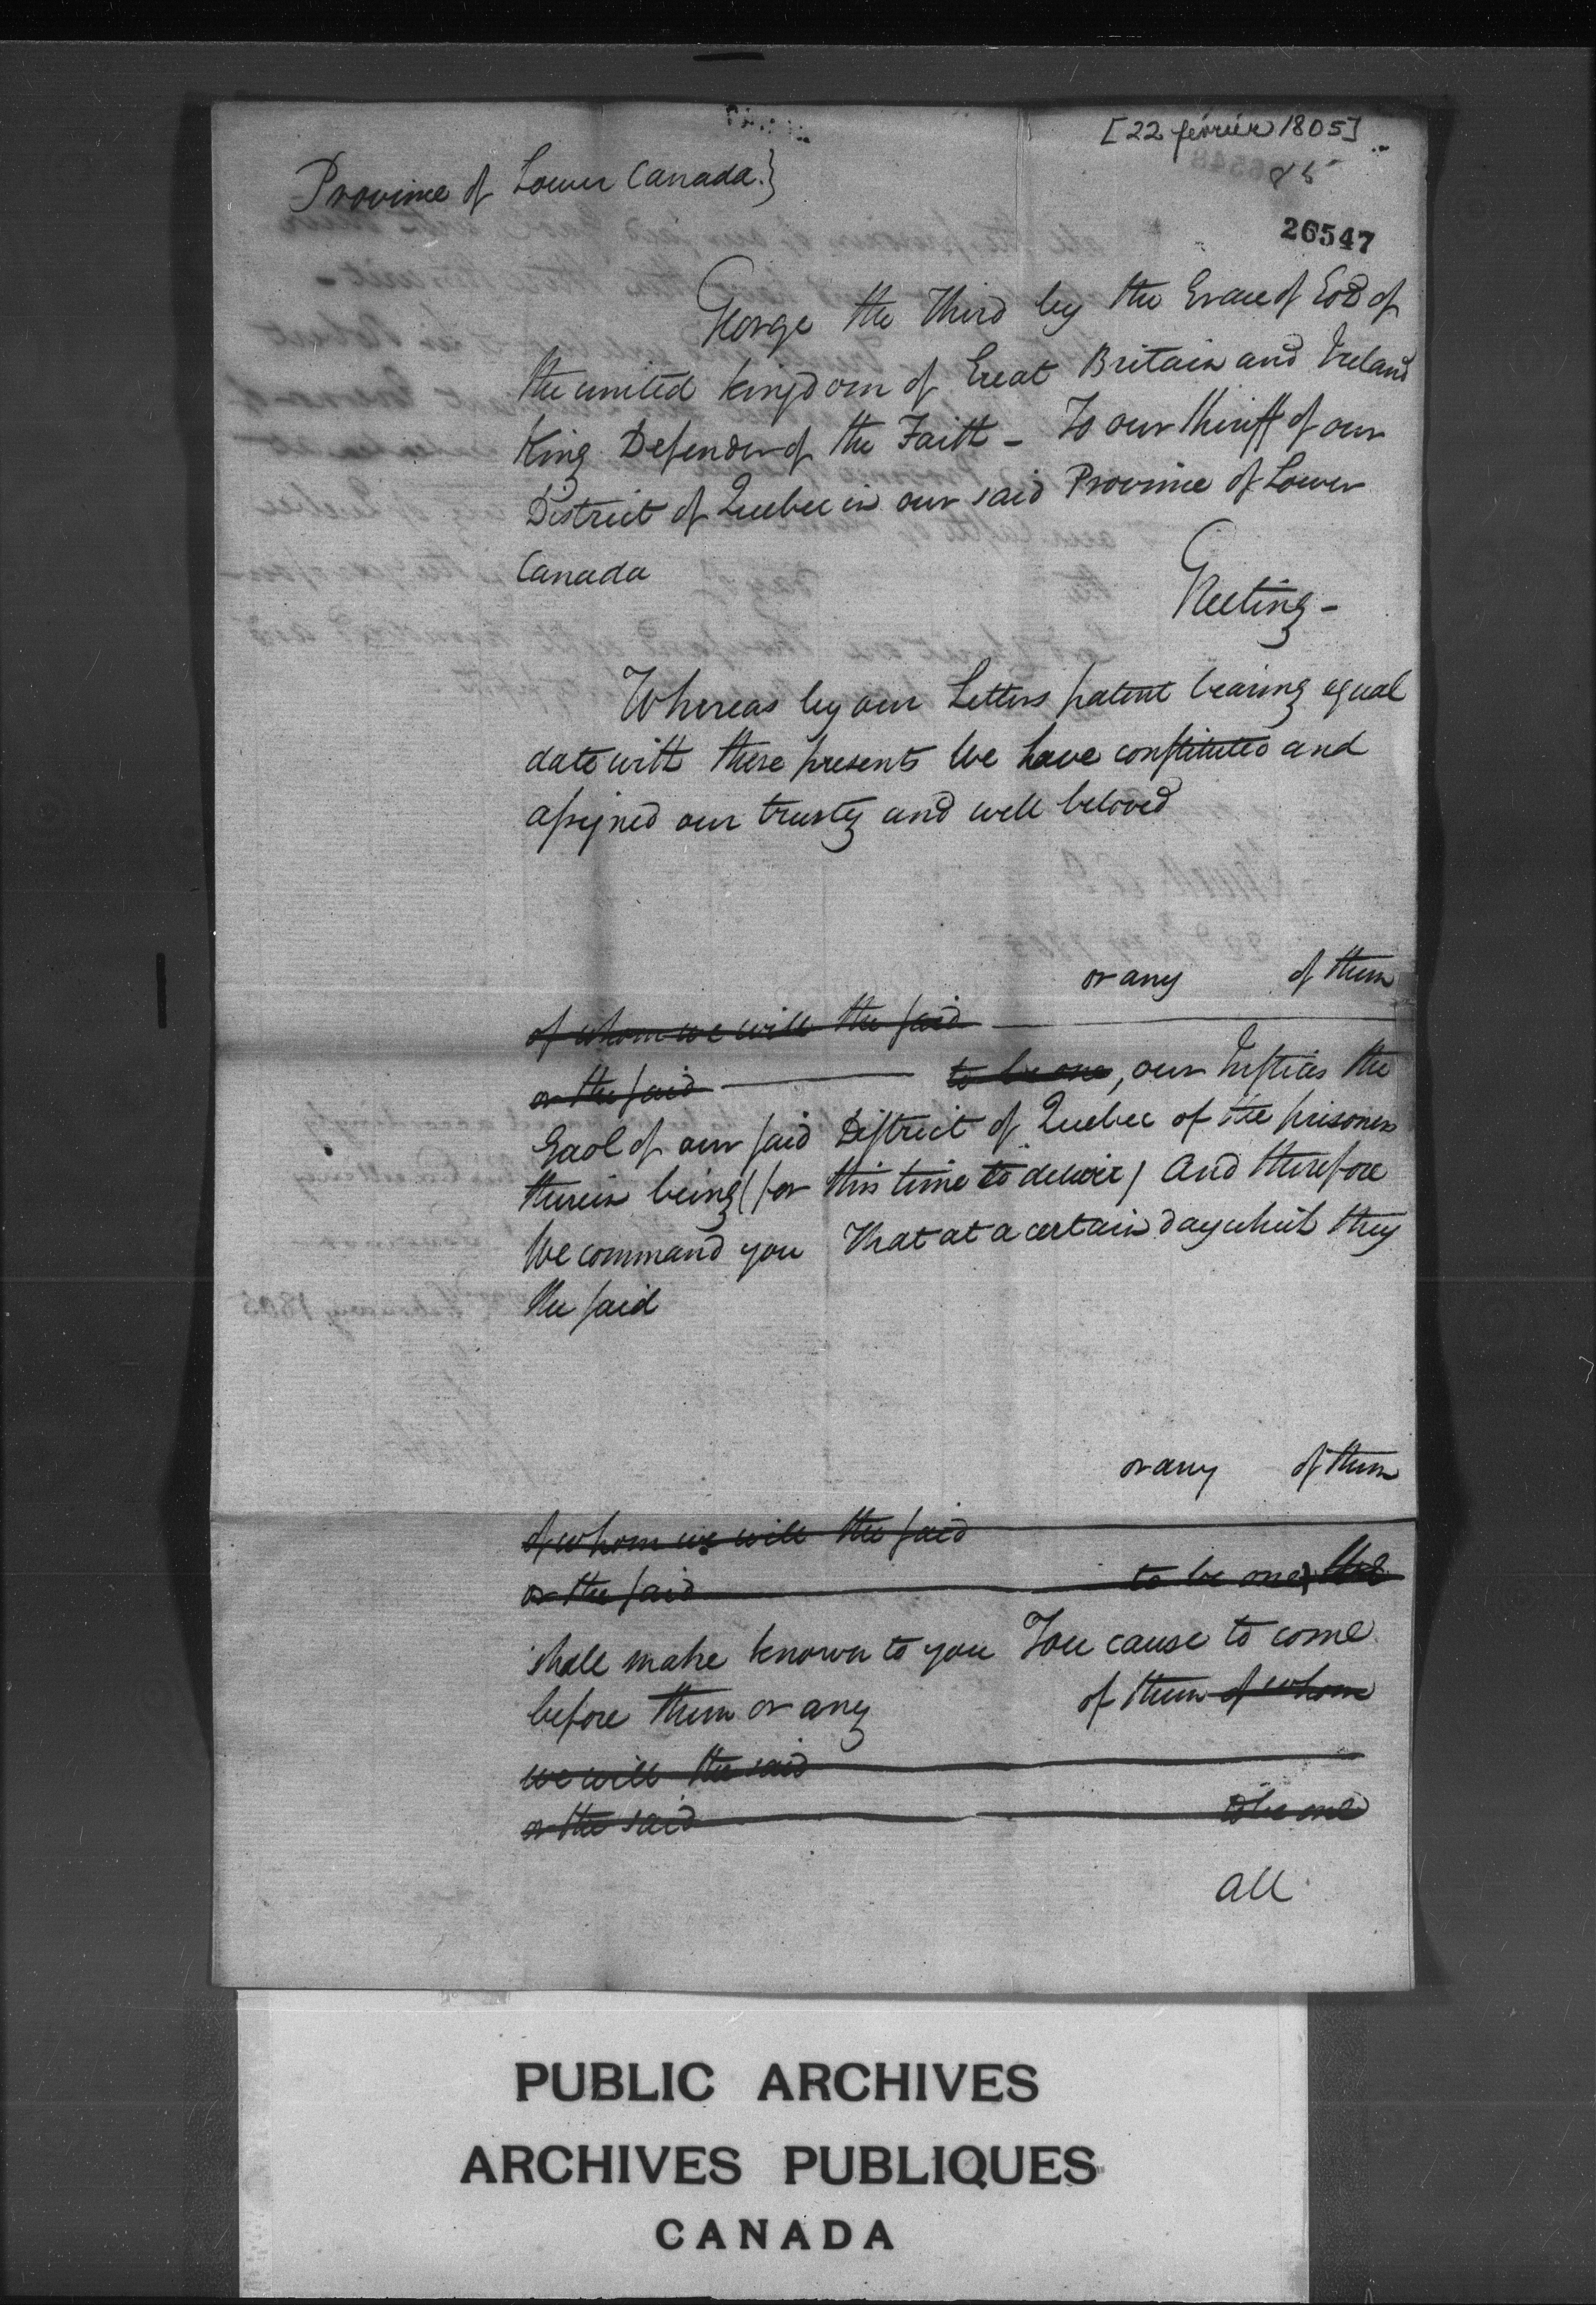 [22 février 1805]
85
Province of Lower Canada.}
26547
George the Third by the Grace of God of
the united kingdom of Great Britain and Ireland
King Defender of the Faith - To our Sheriff of our
District of Quebec in our said Province of Lower
Canada
Greeting -
Whereas by our Letters patent bearing equal
date with these presents We have constituted and
assigned our trusty and well beloved
or any of them
of whom we will the said
or the said to be one, our Justices the
Gaol of our said District of Quebec of the prisoners
therein being (for this time to deliver) And therefore
We command you That at a certain day which they
the said
or any of them
of whom we will the said
or the said to be one, the
shall make known to you You cause to come
before them or any of them of whom
we will the said
or the said to be one
all
PUBLIC ARCHIVES
ARCHIVES PUBLIQUES
CANADA